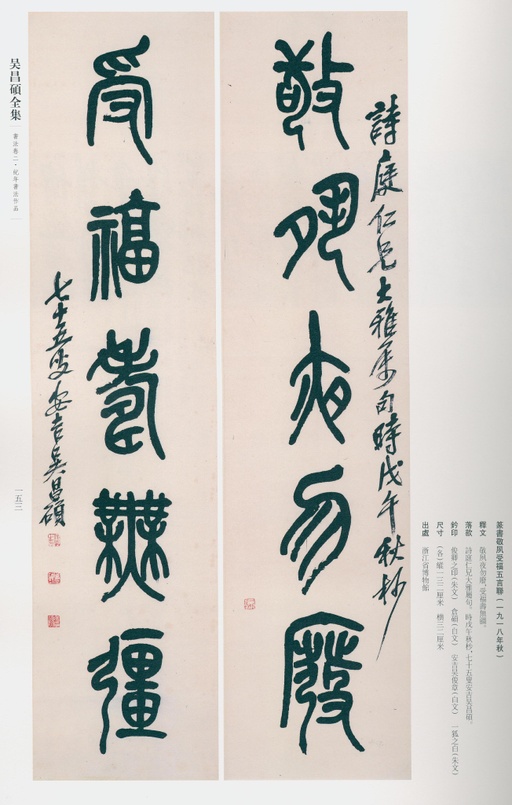 敬夙夜勿廢
詩庭仁兄大雅屬句時戊午秋杪
受福壽無疆
七十五叟安吉吳昌碩
吴昌碩全集
書法卷二·紀年書法作品
一五三
篆書敬夙受福五言聯（一九一八年秋）
釋文 敬夙夜勿廢，受福壽無疆。
落款 詩庭仁兄大雅屬句。時戊午秋杪，七十五叟安吉吳昌碩。
鈐印 俊卿之印（朱文） 倉碩（白文） 安吉吳俊章（白文） 一狐之白（朱文）
尺寸 （各）縱一三二厘米 橫三二厘米
出處 浙江省博物館